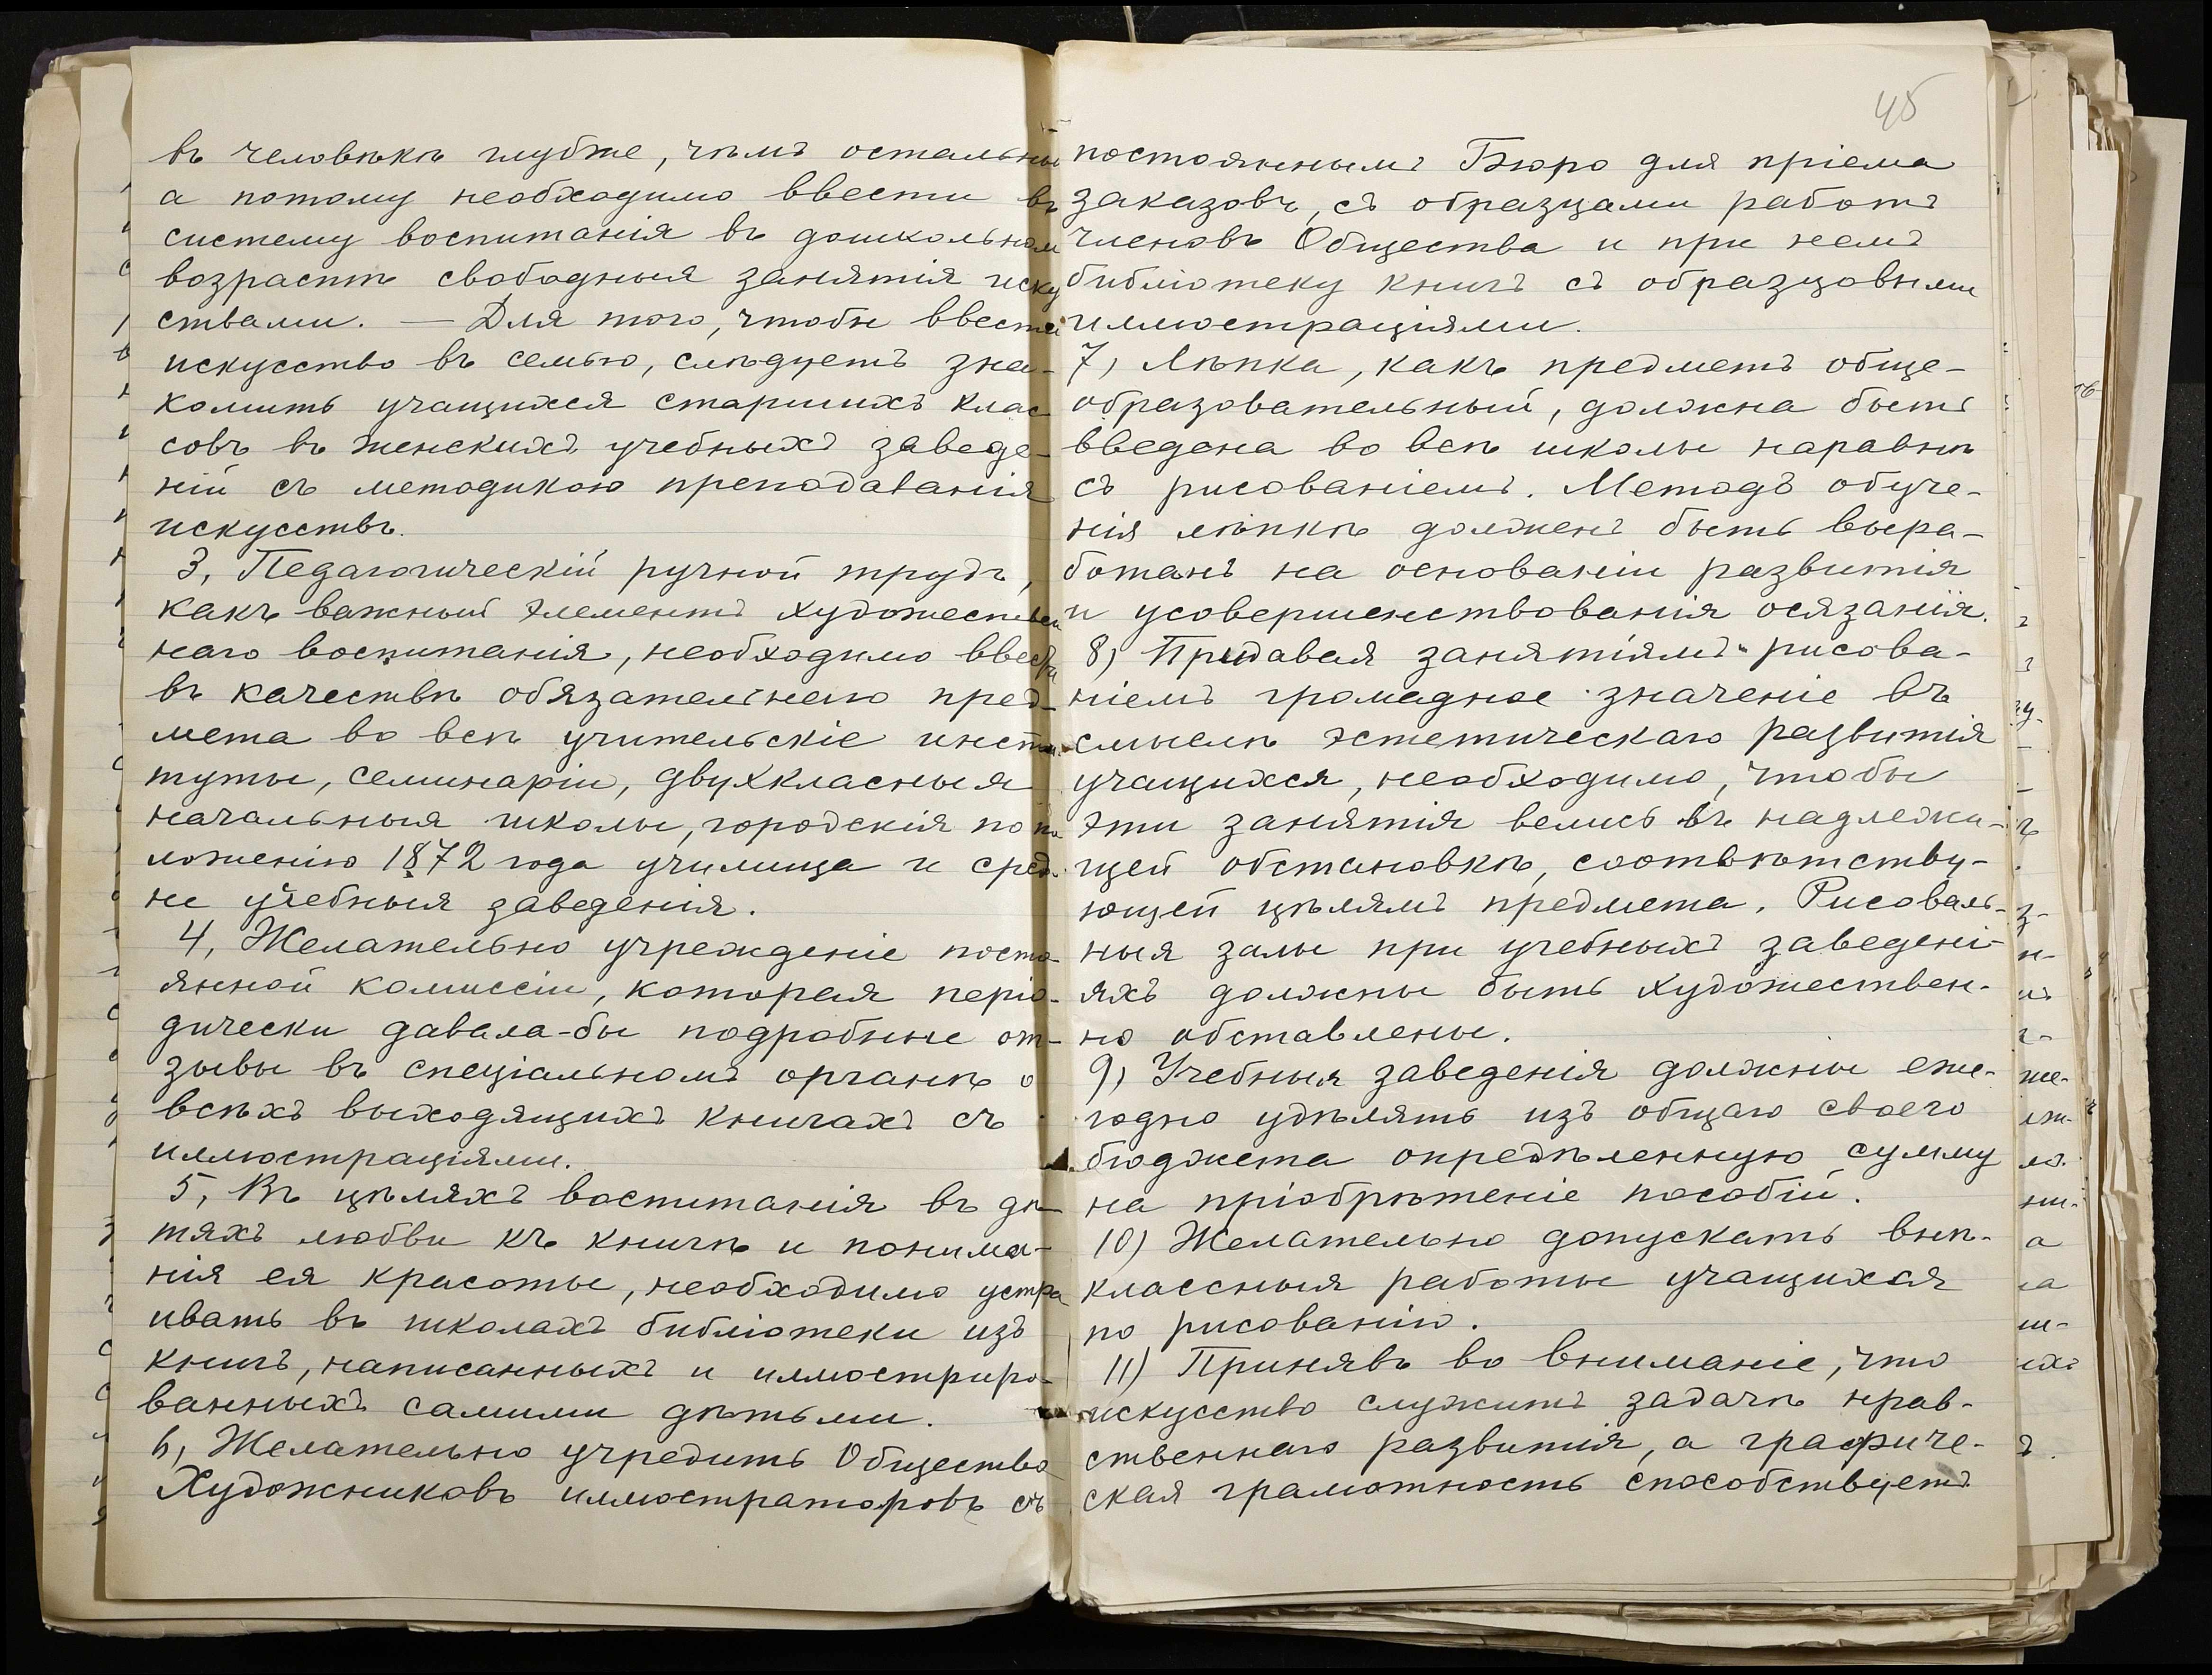 въ человѣкѣ глубже, чѣмъ остальны
а потому необходимо ввести въ
систему воспитанія въ дошкольном
возрастѣ свободныя занятія иску
ствами. — Для того, чтобы ввести
искусство въ семью, слѣдуетъ зна-
комить учащихся старшихъ клас
совъ въ женскихъ учебныхъ заведе-
ній съ методикою преподаванія
искусствъ.
3, Педагогическій ручной трудъ,
какъ важный элементъ художествен
наго воспитанія, необходимо ввести
въ качествѣ обязательнаго пред-
мета во всѣ учительскіе инсти-
туты, семинаріи, двухкласныя
начальныя школы, городскія по по
ложенію 1872 года училища и сред-
не учебныя заведенія.
4, Желательно учрежденіе посто-
янной комиссіи, которая періо-
дически давала-бы подробные от-
зывы въ спеціальномъ органѣ о
всѣхъ выходящихъ книгахъ съ
иллюстраціями.
5, Въ цѣляхъ воспитанія въ дѣ-
тяхъ любви къ книгѣ и понима-
нія ея красоты, необходимо устра
ивать въ школахъ библіотеки изъ
книгъ, написанныхъ и иллюстриро-
ванныхъ самими дѣтьми.
6, Желательно учредить Общество
Художниковъ иллюстраторовъ съ
45
постояннымъ Бюро для пріема
заказовъ, съ образцами работъ
членовъ Общества и при немъ
библіотеку книгъ съ образцовыми
иллюстраціями.
7, Лѣпка, какъ предметъ обще-
образовательный, должна быть
введена во всѣ школы наравнѣ
съ рисованіемъ. Методъ обуче-
нія лѣпкѣ долженъ быть выра-
ботанъ на основаніи развитія
и усовершенствованія осязанія.
8) Придавая занятіямъ рисова-
ніемъ громадное значеніе въ
смыслѣ эстетическаго развитія
учащихся, необходимо, чтобы
эти занятія велись въ надлежа-
щей обстановкѣ, соотвѣтству-
ющей цѣлямъ предмета. Рисоваль-
ныя залы при учебныхъ заведені-
яхъ должны быть художествен-
но обставлены.
9, Учебныя заведенія должны еже-
годно удѣлять изъ общаго своего
бюджета опредѣленную сумму
на пріобрѣтеніе пособій.
10) Желательно допускать внѣ-
классныя работы учащихся
по рисованію.
11) Принявъ во вниманіе, что
искусство служитъ задачѣ нрав-
ственнаго развитія, а графиче-
ская грамотность способствуетъ